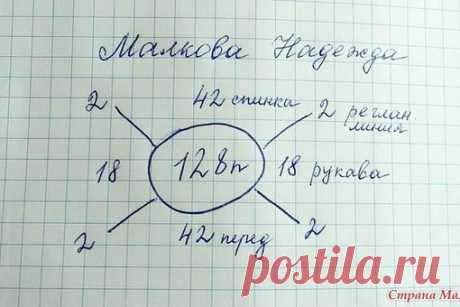 Малкова Надежда
2 42 спинка 2 реглан.
линия
18 128п 18 рукава
2 42 перед 2
postila.ru
Страна Ма